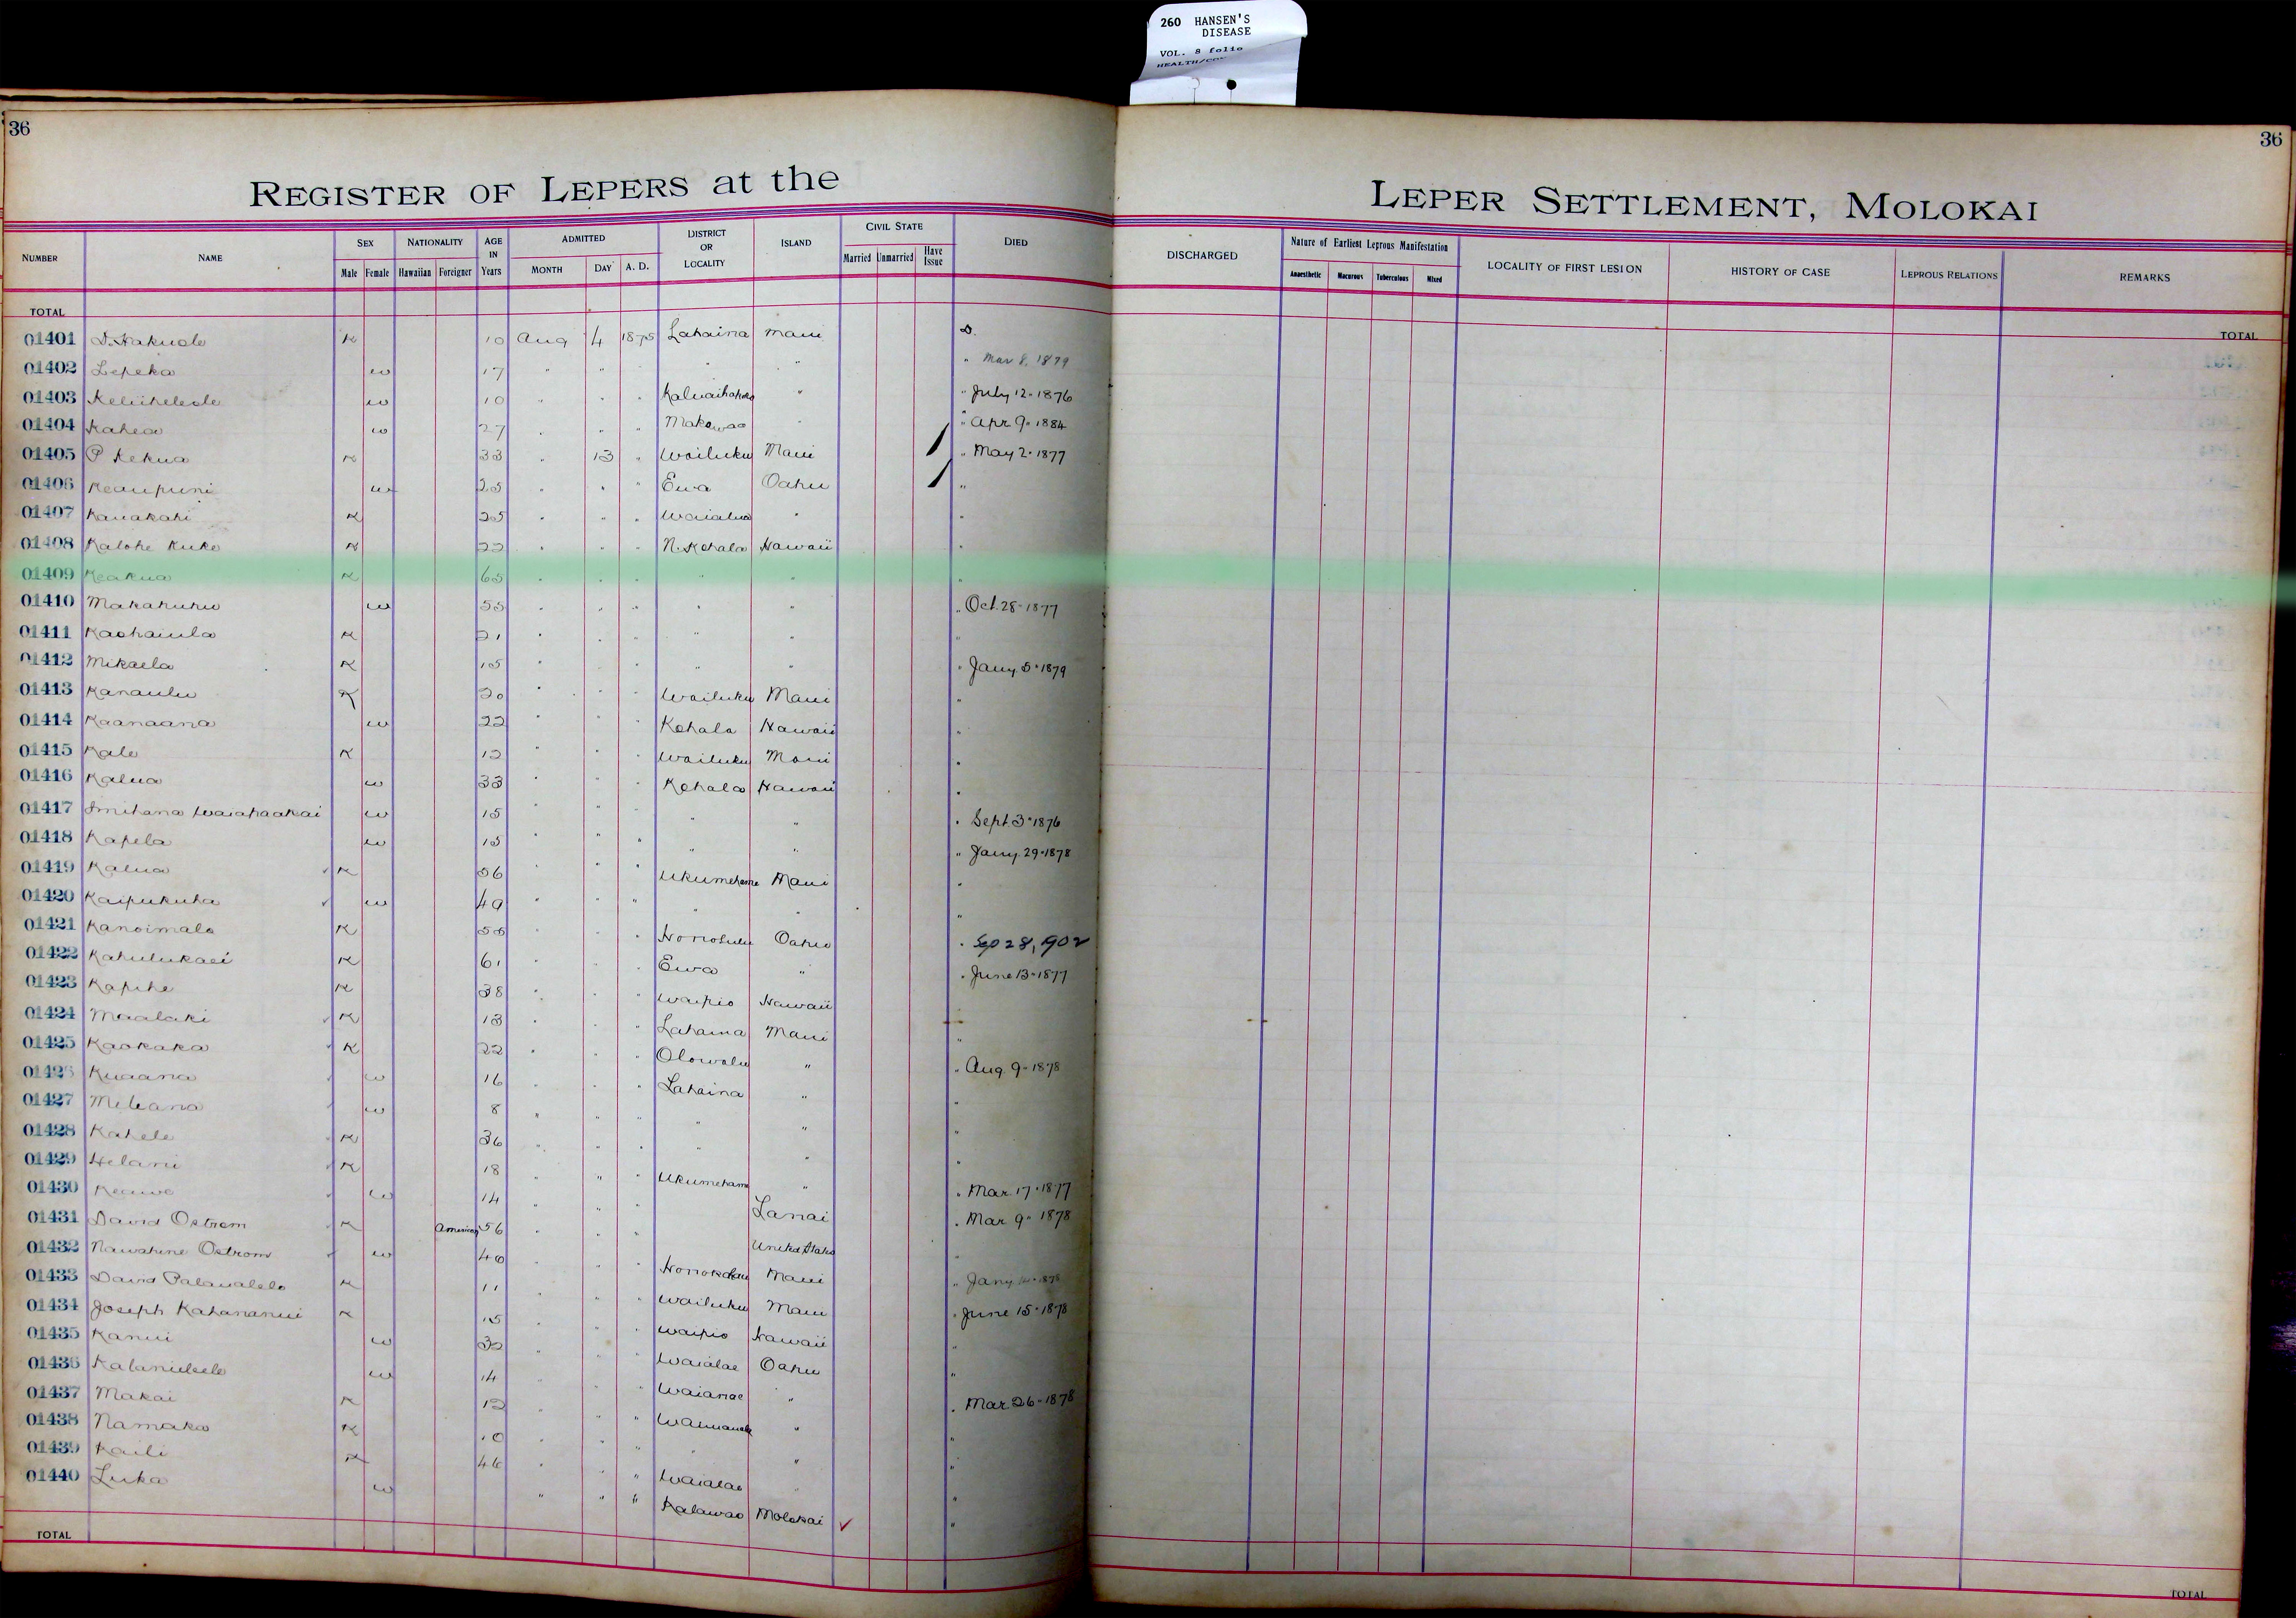 260 HANSEN'S
DISEASE
VOL. 8 folio
36
36
REGISTER OF LEPERS at the LEPER SETTLEMENT, MOLOKAI
NUMBER NAME SEX NATIONALITY AGE IN Years ADMITTED DISTRICT OR LOCALITY ISLAND CIVIL STATE DIED DISCHARGED Nature of Earliest Leprous Manifestation LOCALITY OF FIRST LESION HISTORY OF CASE LEPROUS RELATIONS REMARKS
Male Female Hawaiian Foreigner MONTH DAY A. D. Married Unmarried Have Issue Anaesthetic Macurous Tuberculous Mixed
TOTAL TOTAL
01401 D. Hakuole K 10 Aug 4 1875 Lahaina Maui D.
01402 Lepeka w 17 " " " " " Mar 8. 1879
01403 w 10 " " " " " July 12 - 1876
01404 Kahea w 27 " " " Makawao " " Apr 9 - 1884
01405 P Kekua K 33 " 13 " Wailuku Maui / " May 2 - 1877
01406 Keaupuni w 25 " " " Ewa Oahu / "
01407 Kauakahi K 25 " " " Waialua " "
01408 Kalohe Kuke K 22 " " " N. Kohala Hawaii "
01409 Keakua K 65 " " " " " "
01410 Makahuhu w 55 " " " " " " Oct. 28 - 1877
01411 Kaohaiula K 21 " " " " " "
01412 Mikaela K 15 " " " " " " Jany 5 - 1879
01413 Kanaulu K 20 " " " Wailuku Maui "
01414 Kaanaana w 22 " " " Kohala Hawaii "
01415 Kale K 12 " " " Wailuku Maui "
01416 Kalua w 33 " " " Kohala Hawaii "
01417 w 15 " " " " " " Sept. 3 - 1876
01418 Kapela w 15 " " " " " " Jany. 29 - 1878
01419 Kalua K 56 " " " Ukumehame Maui "
01420 Kaipukuha w 49 " " " " " "
01421 Kanoimalo K " " " Honolulu Oahu " Sep 28, 1902
01422 Kahulukaei K 61 " " " Ewa " " June 13 - 1877
01423 Kapihe K 38 " " " Waipio Hawaii
01424 Maalaki K 13 " " " Lahaina Maui "
01425 Kaokaka K 22 " " " Olowalu " " Aug. 9 - 1878
01426 Kuaana w 16 " " " Lahaina " "
01427 Meleana w 8 " " " " " "
01428 Kahele K 36 " " " " " "
01429 Helani K 18 " " " Ukumehame " " Mar. 17 - 1877
01430 Keawe w 14 " " " Lanai " Mar. 9 - 1878
01431 David Ostrom K American 56 " " " United States "
01432 Nawahine Ostrom w " " " Honokohau Maui " Jany.
01433 David Palaualelo K 11 " " " Wailuku Maui " June 15 - 1878
01434 Joseph Kahananui K 15 " " " Waipio Hawaii "
01435 Kanui w 32 " " " Waialae Oahu "
01436 w 14 " " " Waianae " " Mar. 26 - 1878
01437 Makai K 12 " " " " "
01438 Namaka K 10 " " " " " "
01439 Kaili K 46 " " " Waialae " "
01440 Luka w " " " Kalawao Molokai "
TOTAL TOTAL